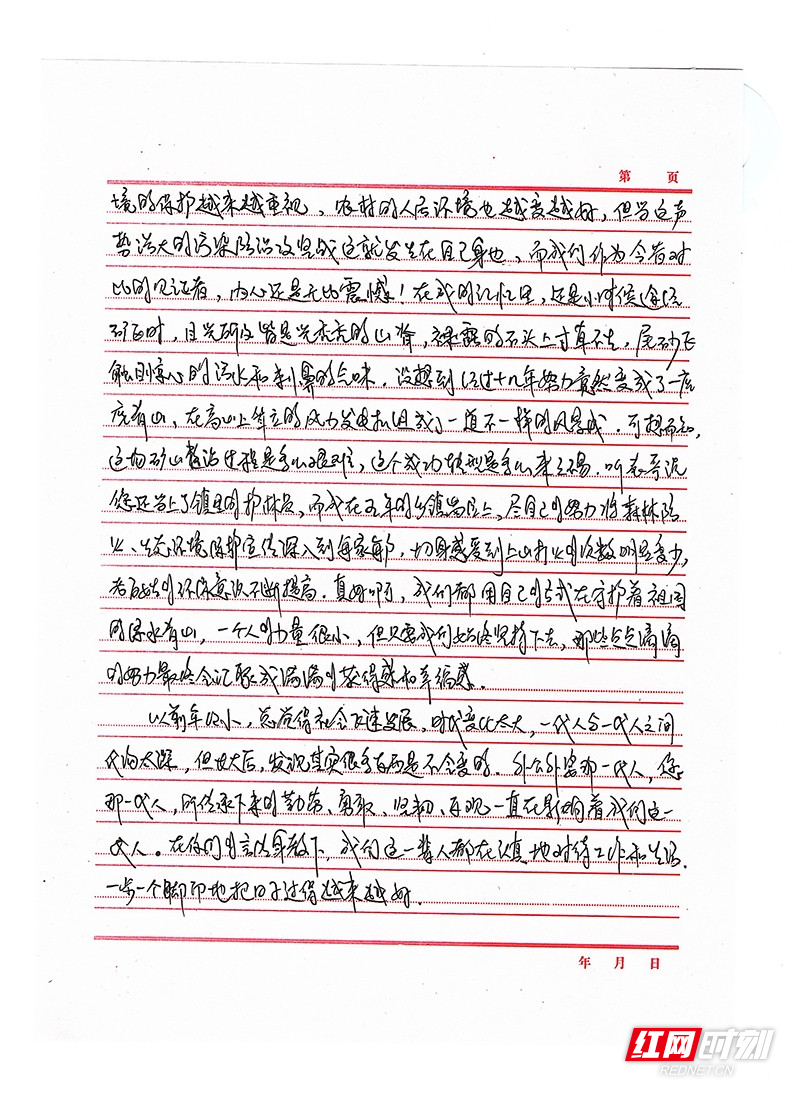 第 页
境的保护越来越重视、农村的人居环境也越变越好，但当这声
势浩大的污染防治攻坚战这就发生在自己身边，而我们作为今昔对
比的见证者，内心还是无比震憾！在我的记忆里，还是小时侯途径
矿区时，目光所及皆是光秃秃的山脊，裸露的石头上寸草不生，尾砂
触目惊心的污水和刺鼻的气味，没想到经过十几年努力竟然变成了一座
座青山，在高山上耸立的风力发电机组成了一道不一样的风景线．可想而知，
这场矿山整治过程是多么艰难，这个成功转型是多么来之不易．听
您还当上了镇里的护林员，而我在五年的乡镇岗位上，尽自己的努力将森林防
火、生态环境保护宣传深入到每家每户，切身感受到上山打火的次数明显变少，
老百姓的环保意识不断提高．真好呀，我们都用自己的方式在守护着祖国
的绿水青山，一个人的力量很小，但只要我们始终坚持下去，那些点点滴滴
的努力最终会汇聚成满满的获得感和幸福感．
以前年纪小，总觉得社会飞速发展，时代变化太大，一代人与一代人之间
代沟太深，但长大后，发现其实很多东西是不会变的．外公外婆那一代人，您
那一代人，所传承下来的勤劳、勇敢、坚韧、乐观一直在影响着我们这一
代人。在你们的言传身教下，我们这一辈人都在认真地对待工作和生活．
一步一个脚印地把日子过得越来越好．
年 月 日
红网时刻
REDNET.CN